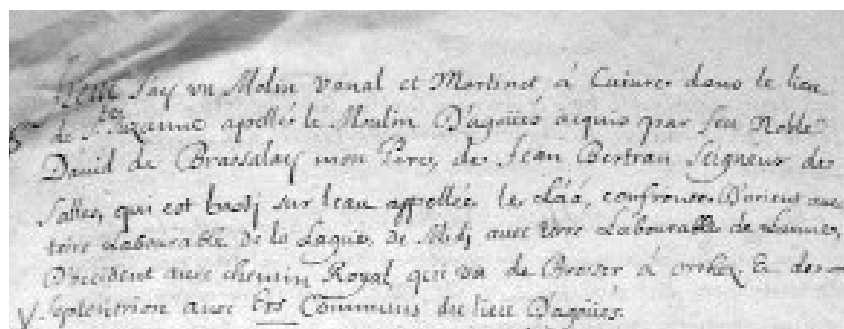 Plus J'ay un Molin banal et Martinet à Cuiure dans le lieu
de Ste Suzanne apellé le Moulin D'agoüés acquis par feu Noble
David de Brassalay mon Pere, de Jean Bertran Seigneur de
Salles, qui est basti sur l'eau appellée le clâa, confronte D'orient avec
terre Labourable de la Lague, de Midj avec terre Labourable de
D'occident avec chemin Royal qui va de a orthez & de
septentrion avec Les Communs du lieu D'agoüés.